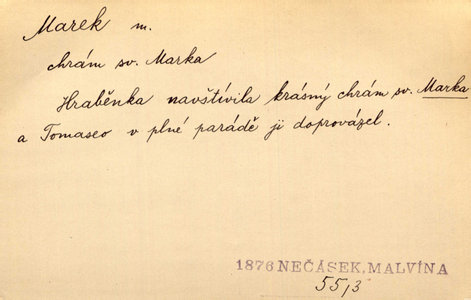 Marek m.
chrám sv. Marka
Hraběnka navštívila krásný chrám sv. Marka
a Tomaseo v plné parádě ji doprovázel.
1876 NEČÁSEK, MALVÍNA
55/3